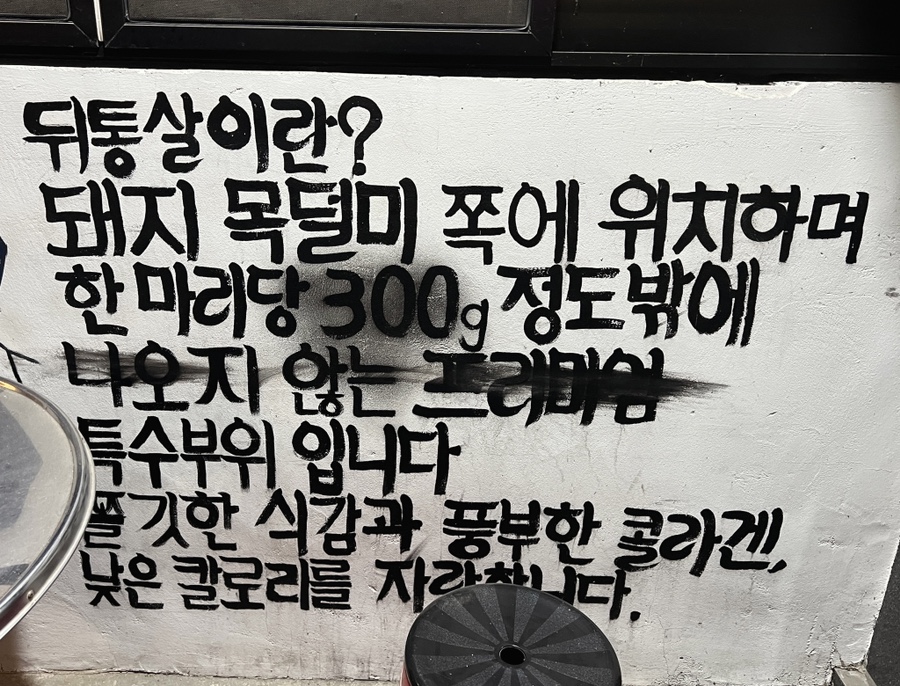 뒤통살이란?
돼지 목덜미 쪽에 위치하며
한마리당 300g 정도밖에
나오지 않는 프리미엄
특수부위 입니다
쫄깃한 식감과 풍부한 콜라겐,
낮은 칼로리를 자랑합니다.